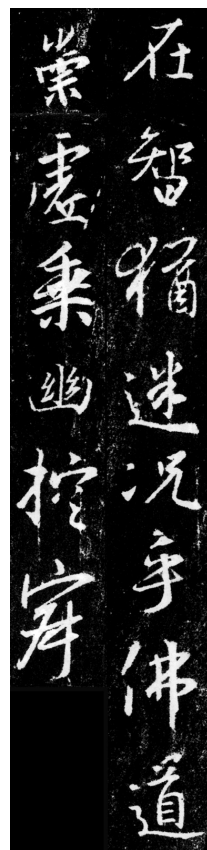 在智猶迷况乎佛道
崇虛乗幽控寂